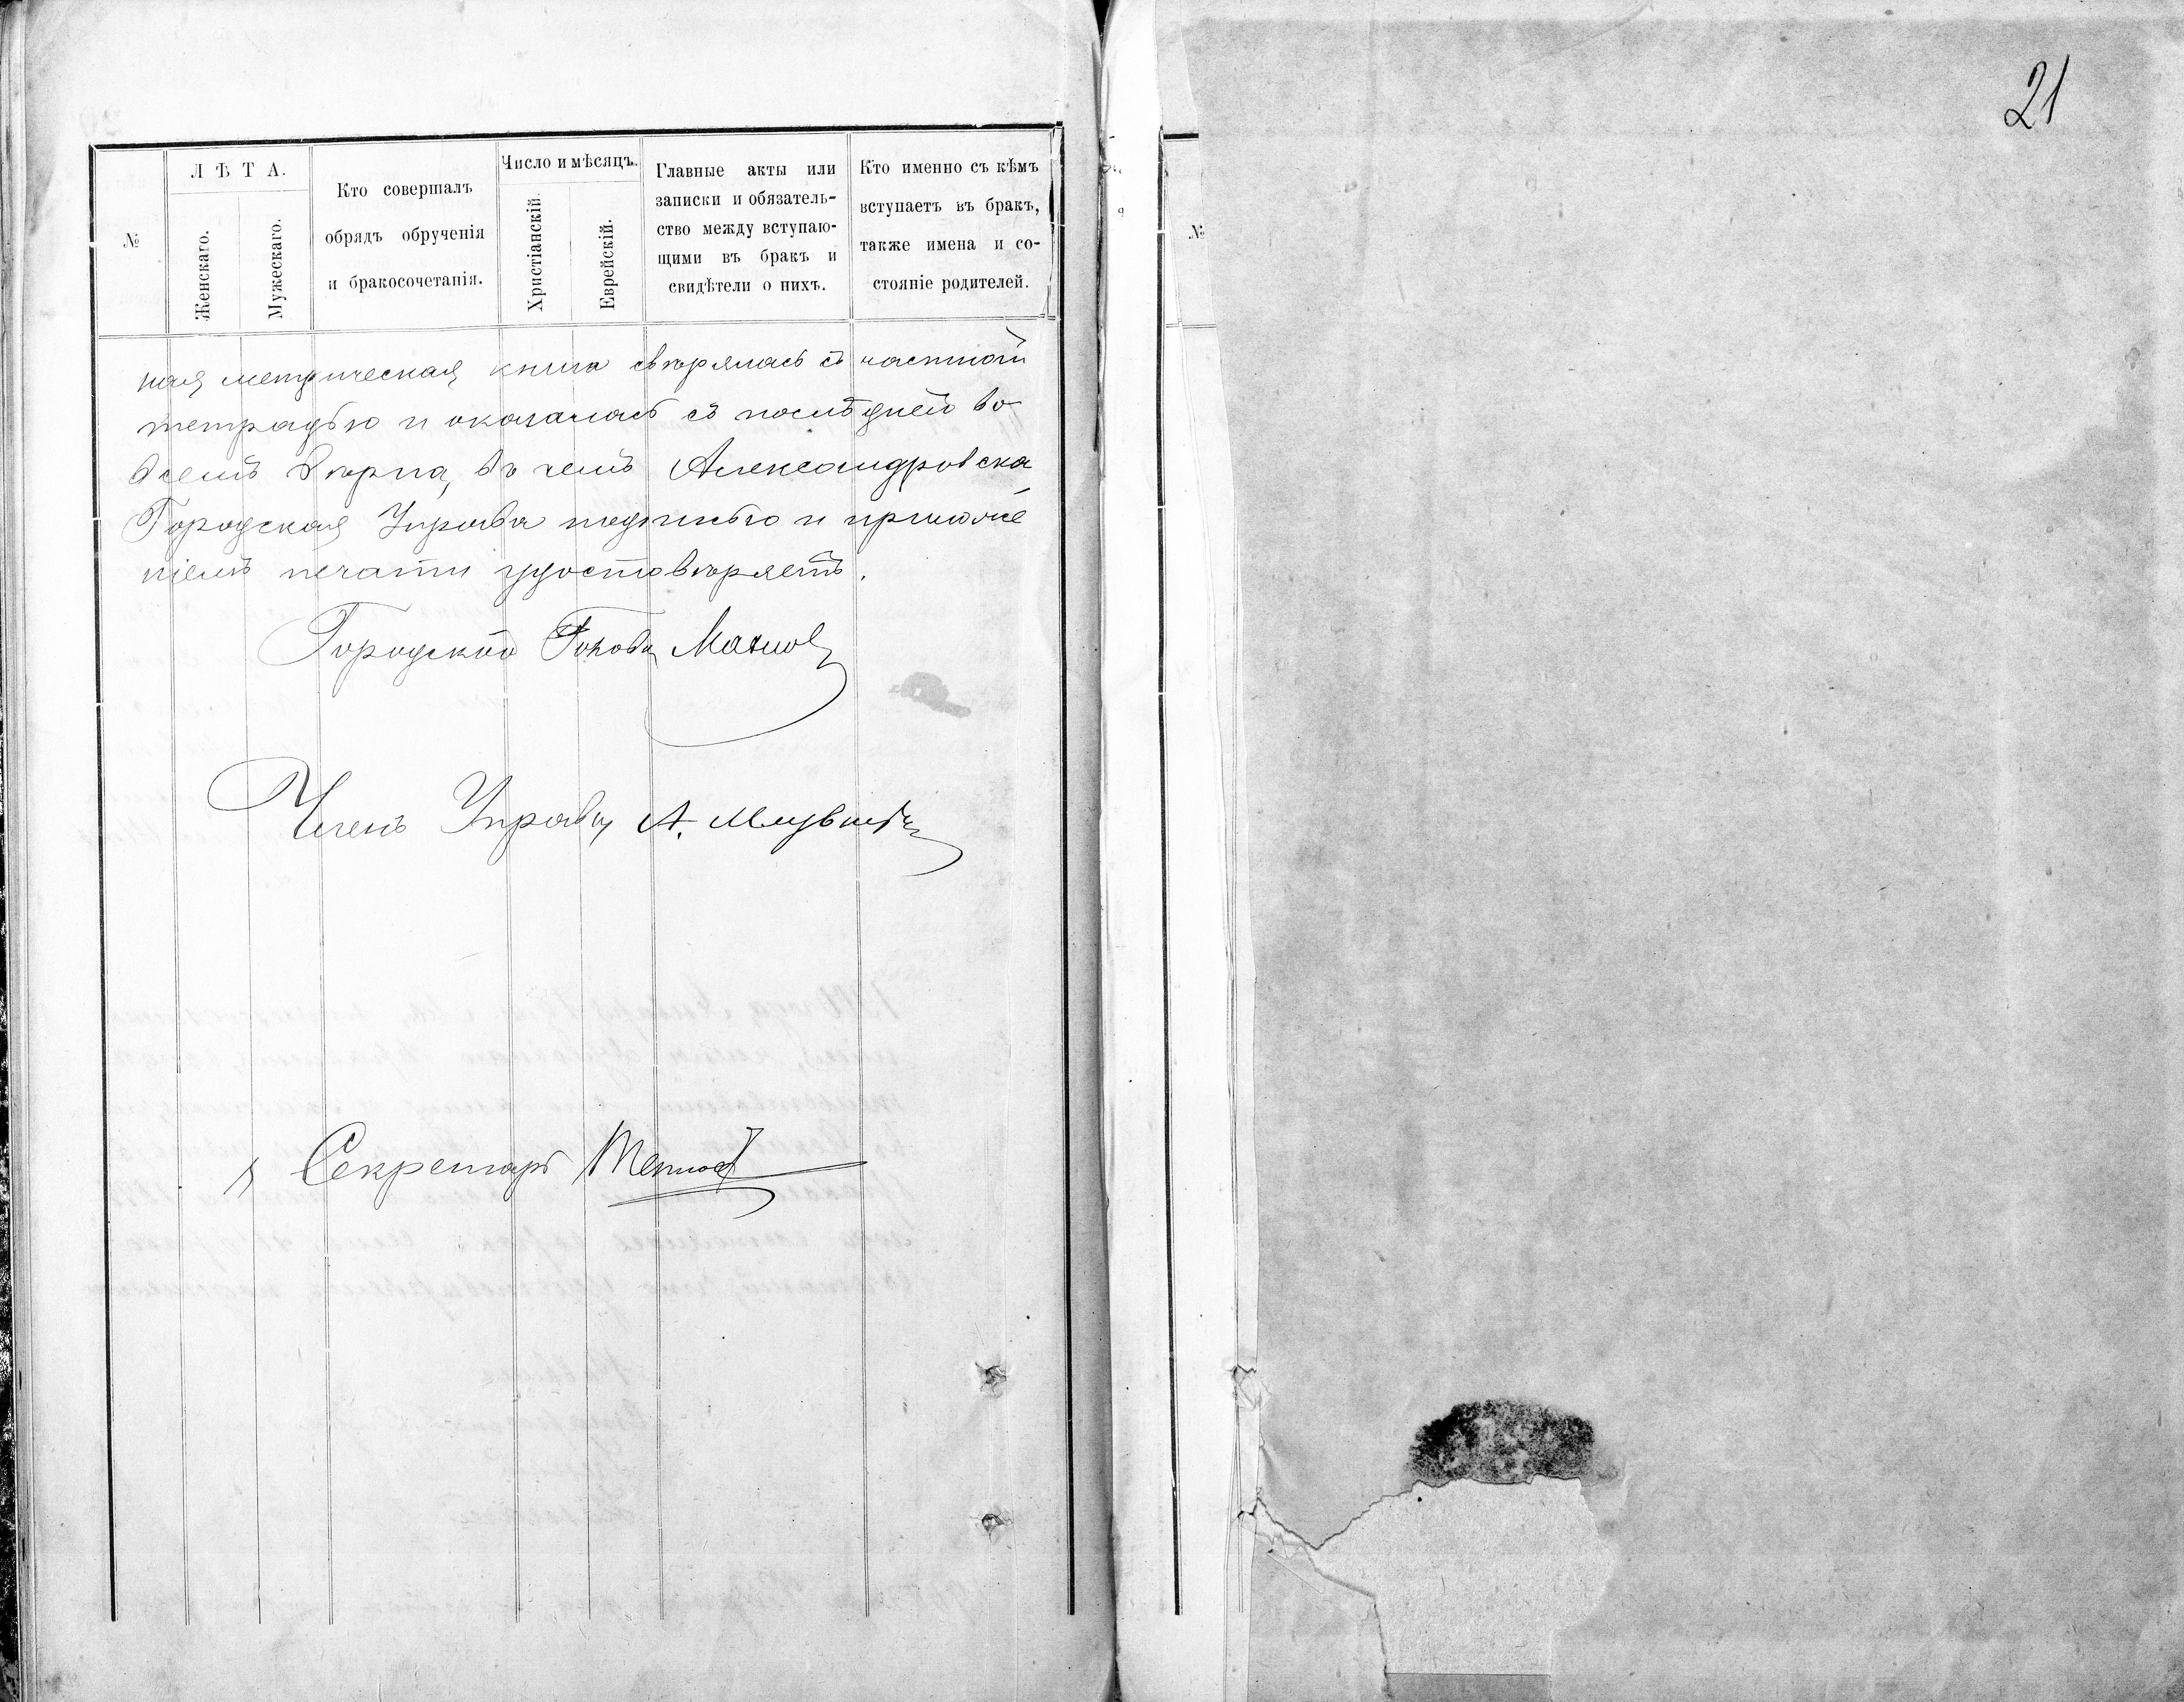 21
№
ЛѢТА.
Женскаго.
Мужескаго.
Кто совершалъ
обрядъ обрученія
и бракосочетанія.
Число и мѣсяцъ.
Христіанскій.
Еврейскій.
Главные акты или
записки и обязатель-
ство между вступаю-
щими въ бракъ и
свидѣтели о нихъ.
Кто именно съ кѣмъ
вступаетъ въ бракъ,
также имена и со-
стояніе родителей.
ная метрическая книга свѣрялась съ частной
тетрадью и оказалась съ послѣдней во
всемъ вѣрна, въ чемъ Александровска
Городская Управа подписью и приложе
ніемъ печати удостовѣряетъ.
Городской Голова
Членъ Управы А.
Секретарь
№